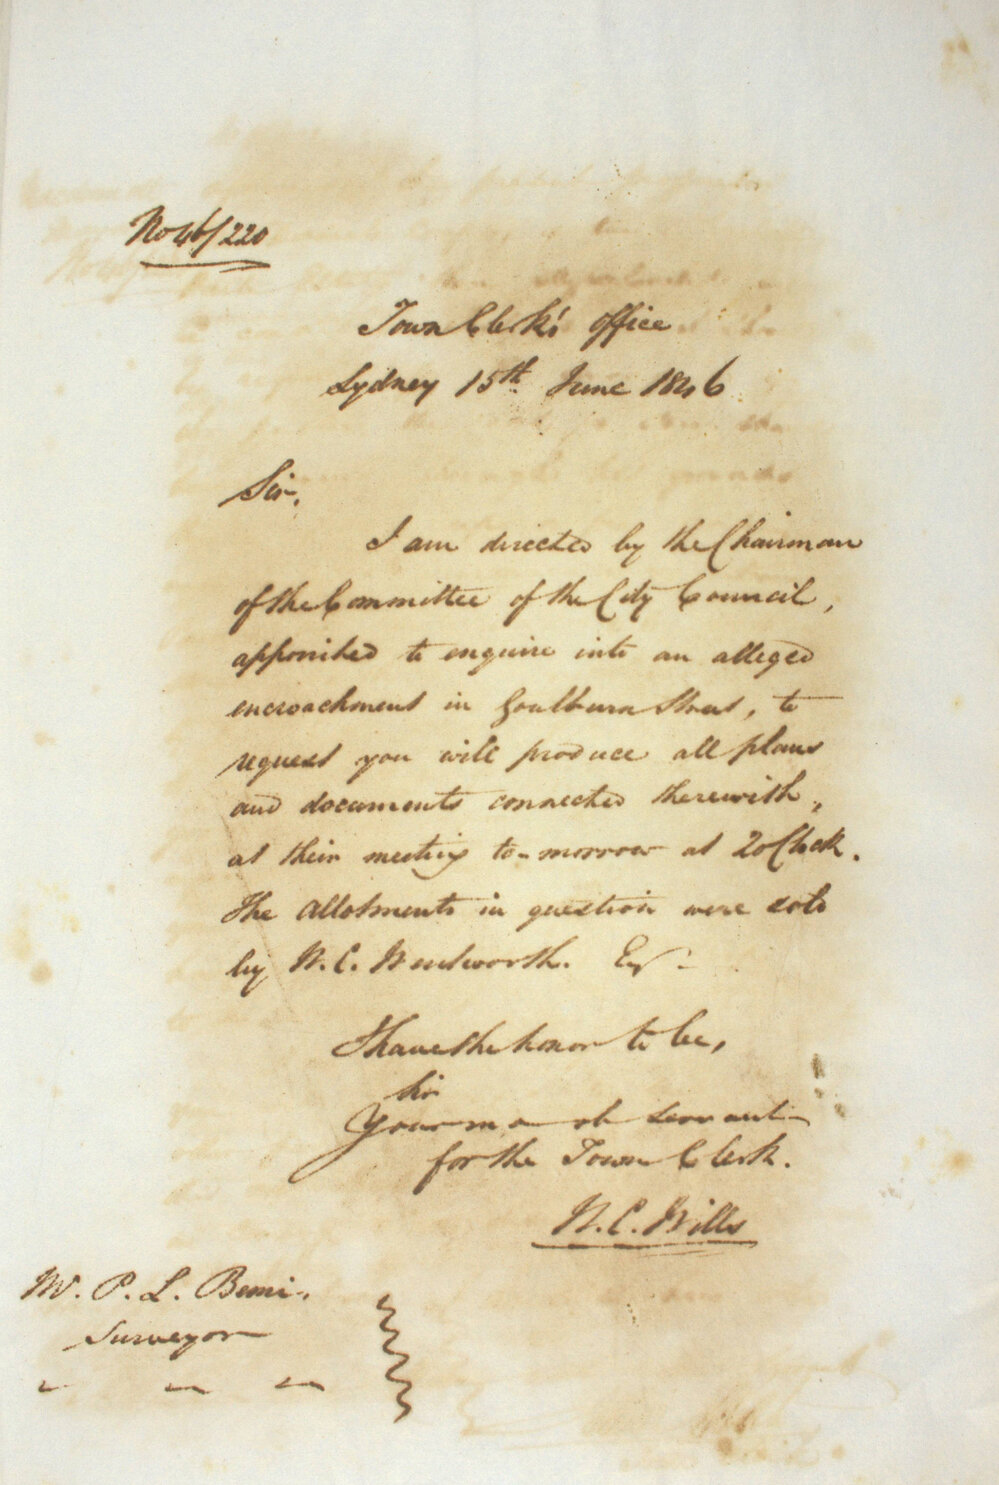 No 46/220
Town Clerk's Office
Sydney 15th June 1846
Sir,
I am directed by the Chairman
of the Committee of the City Council,
appointed to enquire into an alleged
encroachment in Goulburn Street, to
request you will produce all plans
and documents connected therewith,
at their meeting to-morrow at 2 oClock.
The allotments in question were sold
by W. C. Wentworth. Esqr
I have the honor to be,
Sir
Your mo ob servant
for the Town Clerk.
W. C. Wills
Mr. P. L. Bemi.
Surveyor